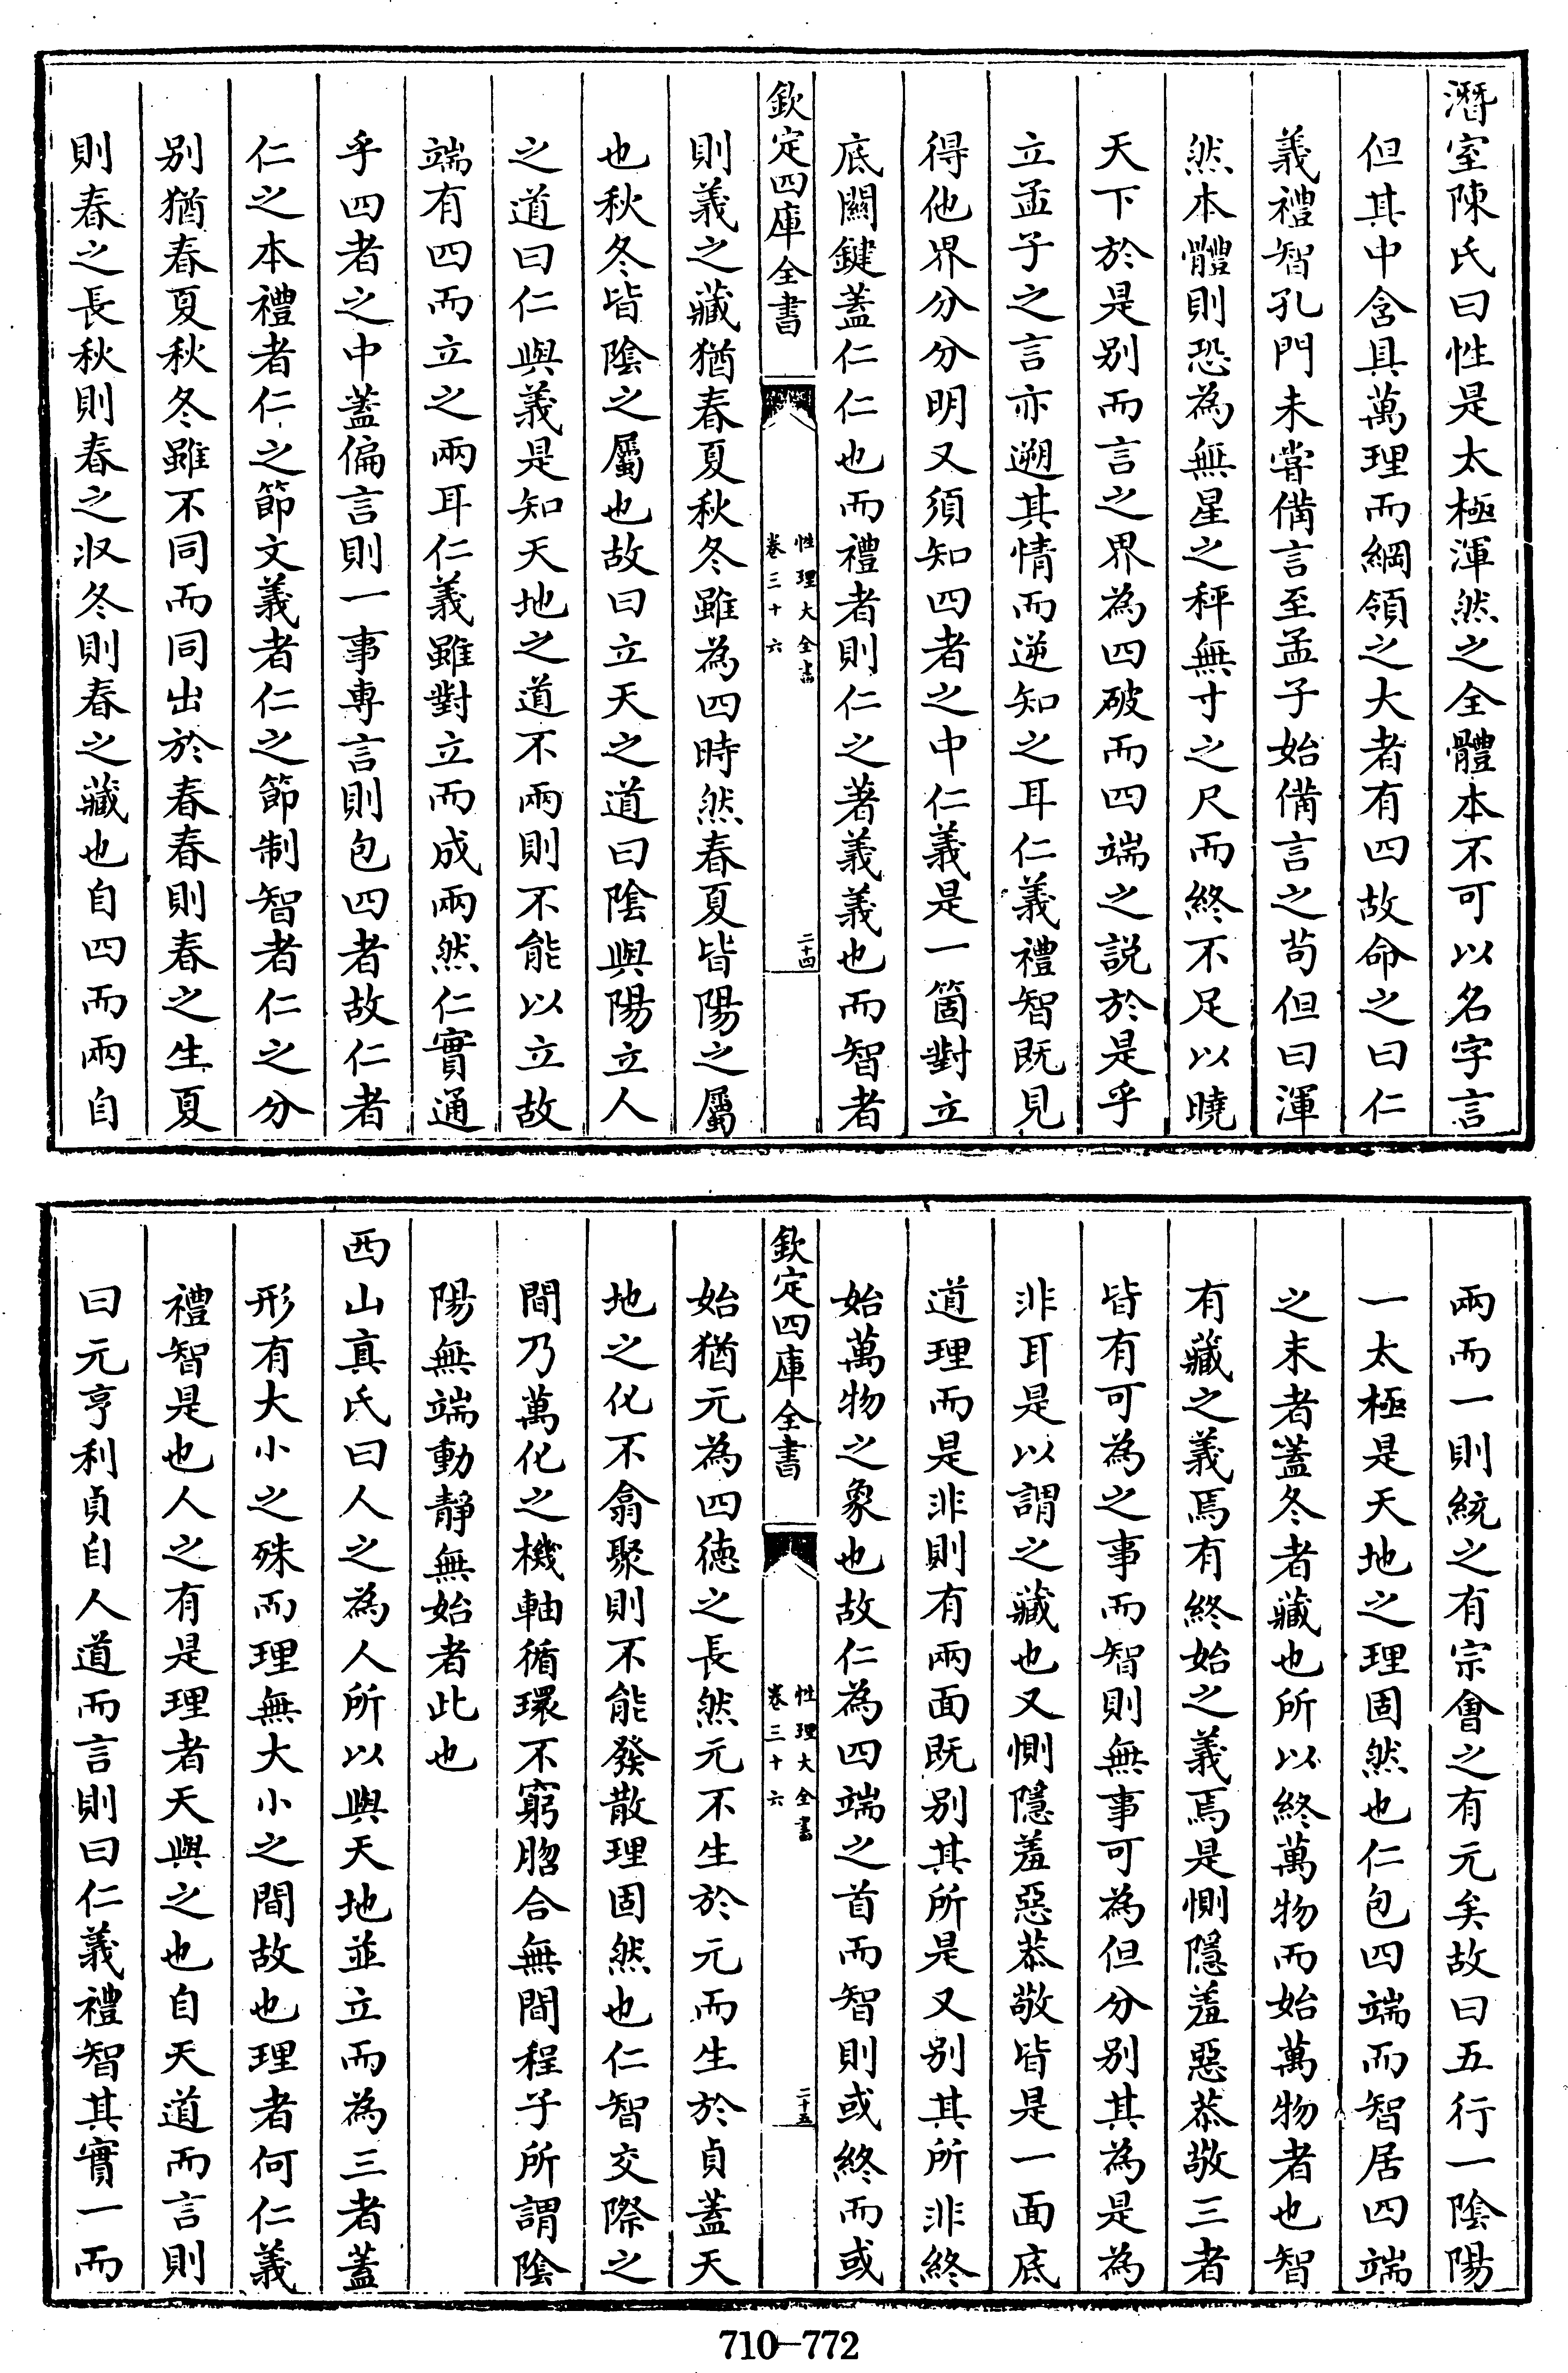 潛室陳氏曰性是太極渾然之全體本不可以名字言
但其中含具萬理而綱領之大者有四故命之曰仁
義禮智孔門未嘗備言至孟子始備言之苟但曰渾
然本體則恐為無星之秤無寸之尺而終不足以曉
天下於是别而言之界為四破而四端之説於是乎
立孟子之言亦遡其情而逆知之耳仁義禮智既見
得他界分分明又須知四者之中仁義是一箇對立
底關鍵蓋仁仁也而禮者則仁之著義義也而智者
欽定四庫全書
性理大全書
卷三十六
二十四
則義之藏猶春夏秋冬雖為四時然春夏皆陽之屬
也秋冬皆陰之屬也故曰立天之道曰陰與陽立人
之道曰仁與義是知天地之道不兩則不能以立故
端有四而立之兩耳仁義雖對立而成兩然仁實通
乎四者之中蓋偏言則一事專言則包四者故仁者
仁之本禮者仁之節文義者仁之節制智者仁之分
别猶春夏秋冬雖不同而同出於春春則春之生夏
則春之長秋則春之収冬則春之藏也自四而兩自
兩而一則統之有宗會之有元矣故曰五行一陰陽
一太極是天地之理固然也仁包四端而智居四端
之末者蓋冬者藏也所以終萬物而始萬物者也智
有藏之義焉有終始之義焉是惻隱羞惡恭敬三者
皆有可為之事而智則無事可為但分别其為是為
非耳是以謂之藏也又惻隱羞惡恭敬皆是一面底
道理而是非則有兩面既别其所是又别其所非終
始萬物之象也故仁為四端之首而智則或終而或
欽定四庫全書
性理大全書
卷三十六
二十五
始猶元為四徳之長然元不生於元而生於貞蓋天
地之化不翕聚則不能發散理固然也仁智交際之
間乃萬化之機軸循環不窮脗合無間程子所謂陰
陽無端動靜無始者此也
西山真氏曰人之為人所以與天地並立而為三者蓋
形有大小之殊而理無大小之間故也理者何仁義
禮智是也人之有是理者天與之也自天道而言則
曰元亨利貞自人道而言則曰仁義禮智其實一而
710-772